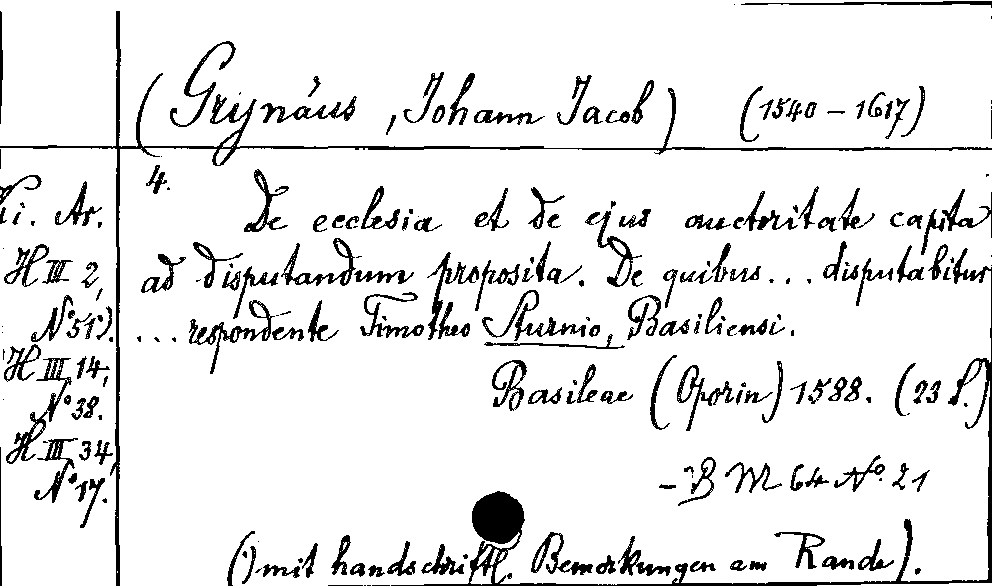 (Grynäus, Johann Jacob) (1540–1617)
4.
Ki. Ar. De ecclesia et de ejus auctoritate capita
H III 2, ad disputandum proposita. De quibus... disputabitur
N° 51¹). ... respondente Timotheo Sturnio, Basiliensi.
H III 14, Basileae (Oporin) 1588. (23 S.)
N° 38.
H III 34,
N° 17. – B M 64 N° 21
(¹) mit handschriftl. Bemerkungen am Rande).